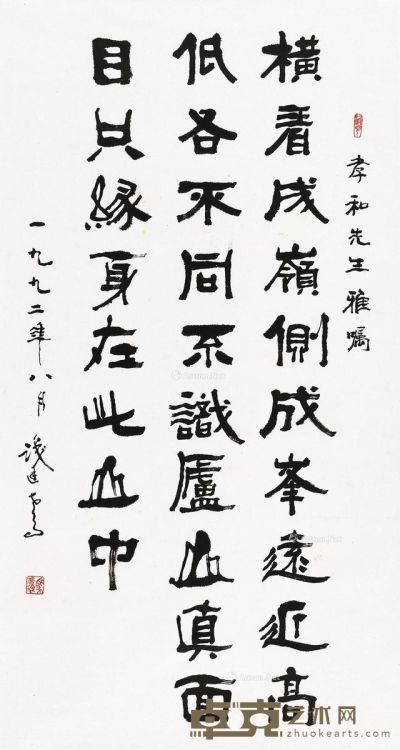 孝和先生雅嘱
横看成嶺側成峯遠近高
低各不同不識廬山真面
目只緣身在此山中
一九九二年八月
卓克艺术网
www.zhuokearts.com